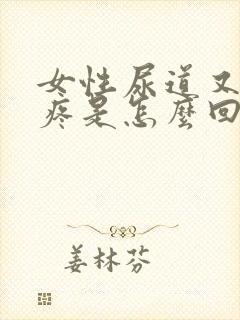 女性尿道又
疼是怎麼回
姜林芬